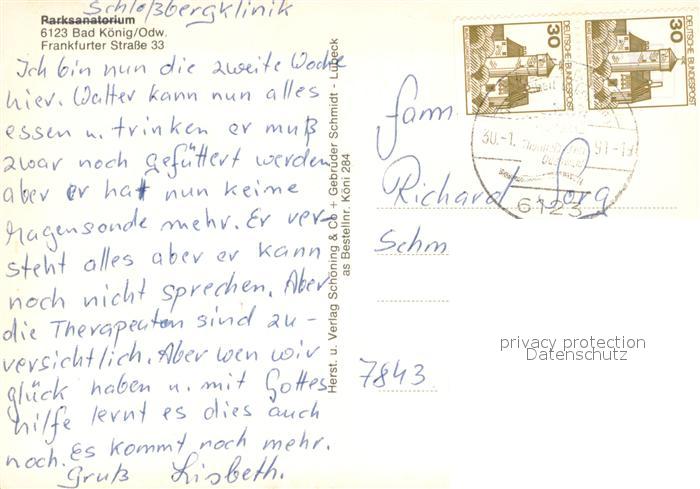 Schloßbergklinik
Parksanatorium
6123 Bad König/Odw.
Frankfurter Straße 33
Ich bin nun die zweite Woche
hier. Walter kann nun alles
essen u. trinken er muß
zwar noch gefüttert werden
aber er hat nun keine
Magensonde mehr. Er ver-
steht alles aber er kann
noch nicht sprechen. Aber
die Therapeuten sind zu-
versichtlich. Aber wen wir
glück haben u. mit Gottes
hilfe lernt es dies auch
noch. Es kommt noch mehr.
Gruß Lisbeth.
Herst. u. Verlag Schöning & Co + Gebrüder Schmidt - Lübeck
as Bestellnr. Köni 284
30 DEUTSCHE BUNDESPOST
30 DEUTSCHE BUNDESPOST
6123
Fam.
Richard Sorg
Schm
7843
privacy protection
Datenschutz